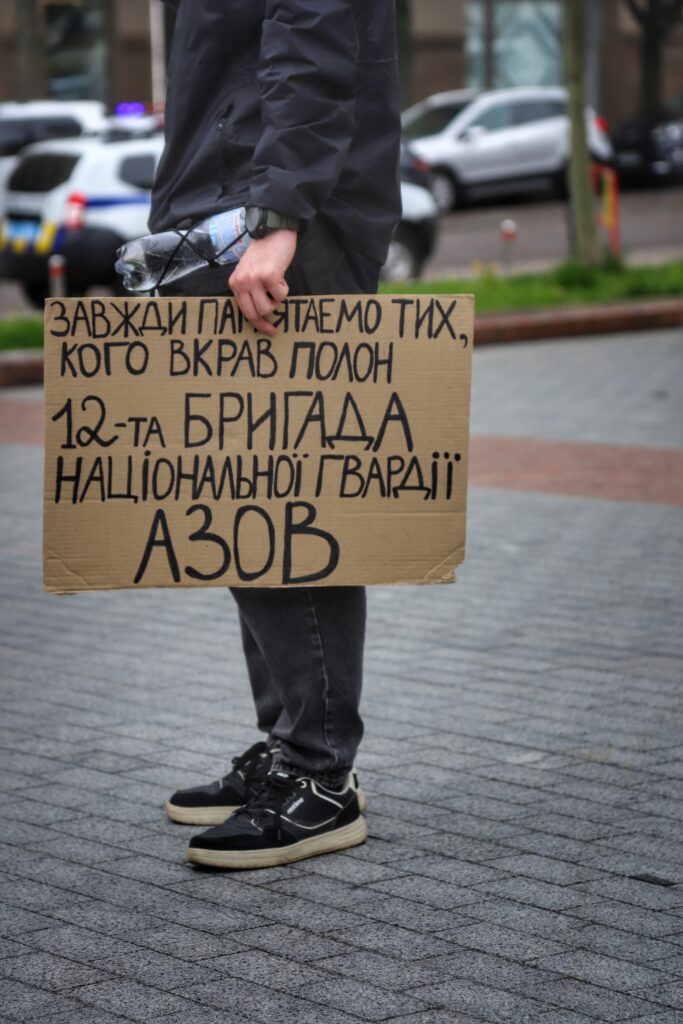 ЗАВЖДИ ПАМ'ЯТАЄМО ТИХ,
КОГО ВКРАВ ПОЛОН
12-ТА БРИГАДА
НАЦІОНАЛЬНОЇ ГВАРДІЇ
АЗОВ